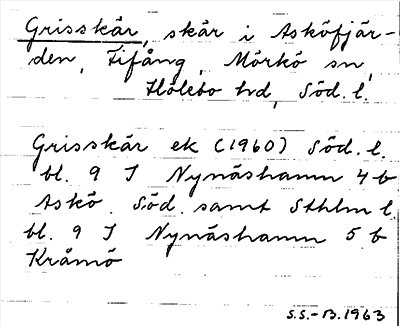 Grisskär, skär i Asköfjär-
den, Fifång, Mörkö sn,
Hölebo hd, Söd. l.
Grisskär ek (1960) Söd. l.
bl. 9 I Nynäshamn 4 b
Askö. Söd. samt Sthlm l.
bl. 9 I Nynäshamn 5 b
Krämö
S.S.-B.1963